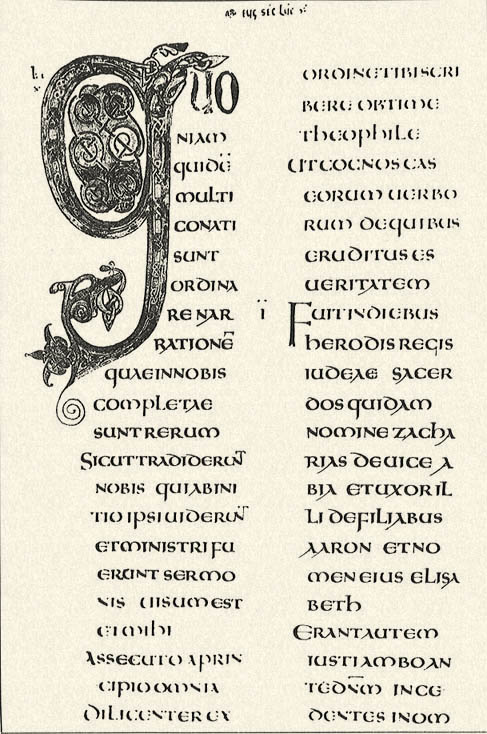 SEC LUC
QUO
NIAM
QUIDĒ
MULTI
CONATI
SUNT
ORDINA
RE NAR
RATIONĒ
QUAEINNOBIS
COMPLETAE
SUNTRERUM
SICUTTRADIDERUNT
NOBIS QUIABINI
TIOIPSIUIDERUNT
ETMINISTRIFU
ERUNTSERMO
NIS UISUMEST
ETMIHI
ASSECUTOAPRIN
CIPIOOMNIA
DILIGENTEREX
ORDINETIBISCRI
BERE OBTIME
THEOPHILE
UTCOGNOSCAS
EORUM UERBO
RUM DEQUIBUS
ERUDITUSES
UERITATEM
I FUITINDIEBUS
HERODISREGIS
IUDEAE SACER
DOSQUIDAM
NOMINEZACHA
RIASDEUICE A
BIA ETUXORIL
LIDEFILIABUS
AARON ETNO
MENEIUS ELISA
BETH
ERANTAUTEM
IUSTIAMBOAN
TEDN̄M INCE
DENTESINOM